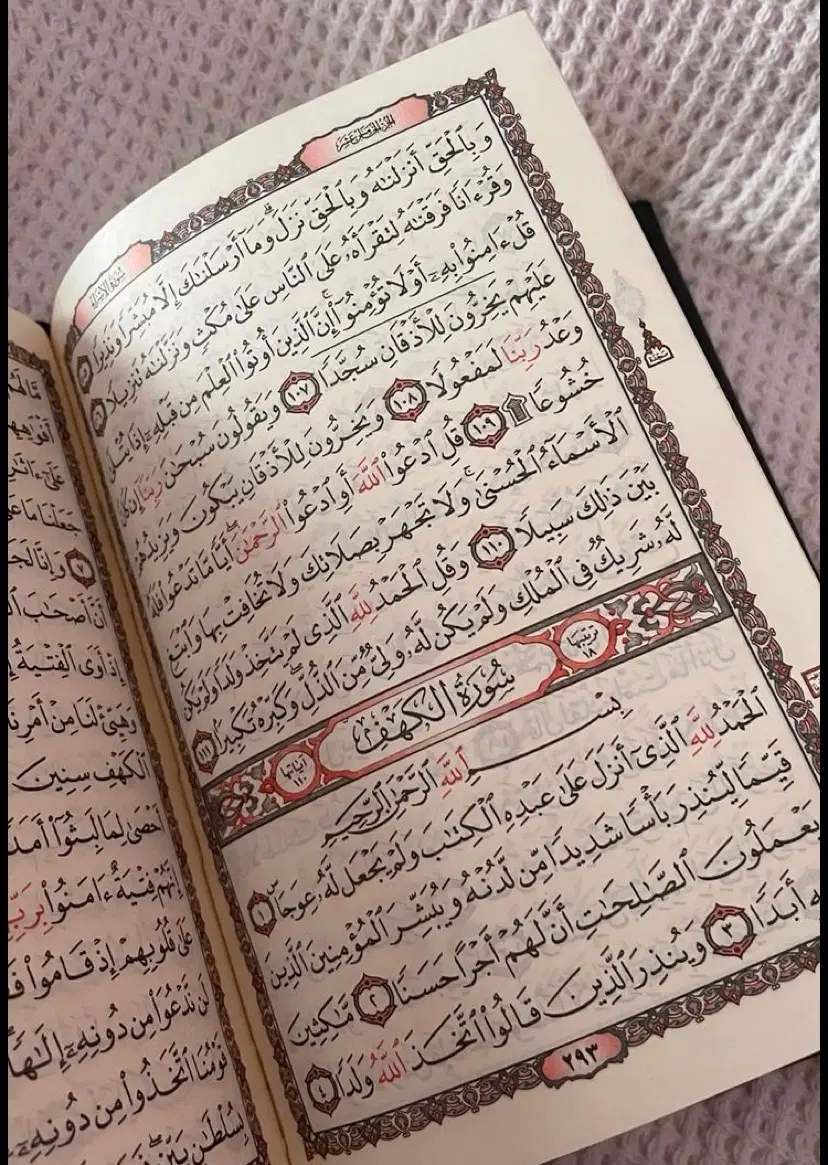 الجزء الخامس عشر
سورة الإسراء
وَبِٱلْحَقِّ أَنزَلْنَٰهُ وَبِٱلْحَقِّ نَزَلَ ۗ وَمَآ أَرْسَلْنَٰكَ إِلَّا مُبَشِّرًا وَنَذِيرًا
وَقُرْءَانًا فَرَقْنَٰهُ لِتَقْرَأَهُۥ عَلَى ٱلنَّاسِ عَلَىٰ مُكْثٍ وَنَزَّلْنَٰهُ تَنزِيلًا
قُلْ ءَامِنُوا۟ بِهِۦٓ أَوْ لَا تُؤْمِنُوٓا۟ ۚ إِنَّ ٱلَّذِينَ أُوتُوا۟ ٱلْعِلْمَ مِن قَبْلِهِۦٓ إِذَا
عَلَيْهِمْ يَخِرُّونَ لِلْأَذْقَانِ سُجَّدًا ١٠٧ وَيَقُولُونَ سُبْحَٰنَ رَبِّنَآ إِن كَانَ
وَعْدُ رَبِّنَا لَمَفْعُولًا ١٠٨ وَيَخِرُّونَ لِلْأَذْقَانِ يَبْكُونَ وَيَزِيدُهُمْ
خُشُوعًا ١٠٩ قُلِ ٱدْعُوا۟ ٱللَّهَ أَوِ ٱدْعُوا۟ ٱلرَّحْمَٰنَ ۖ أَيًّا مَّا تَدْعُوا۟ فَلَهُ
ٱلْأَسْمَآءُ ٱلْحُسْنَىٰ ۚ وَلَا تَجْهَرْ بِصَلَاتِكَ وَلَا تُخَافِتْ بِهَا وَٱبْتَغِ
بَيْنَ ذَٰلِكَ سَبِيلًا ١١٠ وَقُلِ ٱلْحَمْدُ لِلَّهِ ٱلَّذِى لَمْ يَتَّخِذْ وَلَدًا وَلَمْ يَكُن
لَّهُۥ شَرِيكٌ فِى ٱلْمُلْكِ وَلَمْ يَكُن لَّهُۥ وَلِىٌّ مِّنَ ٱلذُّلِّ ۖ وَكَبِّرْهُ تَكْبِيرًۢا ١١١
ترتيبها ١٨ سُورَةُ الكَهْفِ آياتها ١١٠
بِسْمِ ٱللَّهِ ٱلرَّحْمَٰنِ ٱلرَّحِيمِ
ٱلْحَمْدُ لِلَّهِ ٱلَّذِىٓ أَنزَلَ عَلَىٰ عَبْدِهِ ٱلْكِتَٰبَ وَلَمْ يَجْعَل لَّهُۥ عِوَجَا ۜ ١
قَيِّمًا لِّيُنذِرَ بَأْسًا شَدِيدًا مِّن لَّدُنْهُ وَيُبَشِّرَ ٱلْمُؤْمِنِينَ ٱلَّذِينَ
يَعْمَلُونَ ٱلصَّٰلِحَٰتِ أَنَّ لَهُمْ أَجْرًا حَسَنًا ٢ مَّٰكِثِينَ
أَبَدًا ٣ وَيُنذِرَ ٱلَّذِينَ قَالُوا۟ ٱتَّخَذَ ٱللَّهُ وَلَدًا ٤
٢٩٣
سجدة
مَّا لَهُم
أَفْوَٰهِهِمْ
عَلَىٰٓ
جَعَلْنَا مَا عَلَى
٧ وَإِنَّا
أَنَّ أَصْحَٰبَ
إِذْ أَوَى ٱلْفِتْيَةُ
وَهَيِّئْ لَنَا مِنْ أَمْرِنَا
ٱلْكَهْفِ سِنِينَ
أَحْصَىٰ لِمَا لَبِثُوٓا۟ أَمَدًا
إِنَّهُمْ فِتْيَةٌ ءَامَنُوا۟ بِرَبِّ
عَلَىٰ قُلُوبِهِمْ إِذْ قَامُوا۟
لَن نَّدْعُوَا۟ مِن دُونِهِۦٓ إِلَٰهًا
قَوْمُنَا ٱتَّخَذُوا۟ مِن دُونِهِۦٓ
بِسُلْطَٰنٍۭ بَيِّنٍ